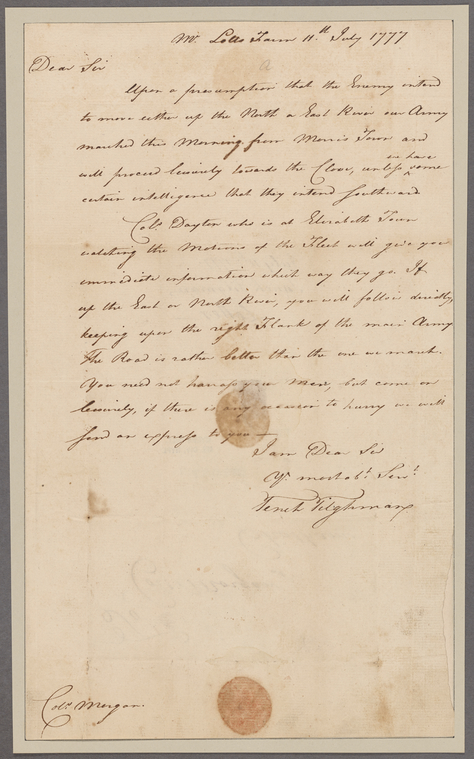 Mr. Lotts Farm 11.th July 1777
Dear Sir
Upon a presumption that the Enemy intend
to move either up the North or East River our Army
marched this Morning from Morris Town and
will proceed leisurely towards the Clove, unless we have some
certain intelligence that they intend Southward
Colo. Dayton who is at Elizabeth Town
watching the Motions of the Fleet will give you
immediate information which way they go. If
up the East or North River, you will follow directly,
keeping upon the right Flank of the main Army
The Road is rather better than the one we march.
You need not harrass your Men, but come on
leisurely, if there is any occasion to hurry we will
send an express to you—
I am Dear Sir
Yr. most obt. Servt.
Tench Tilghman
Colo. Morgan.